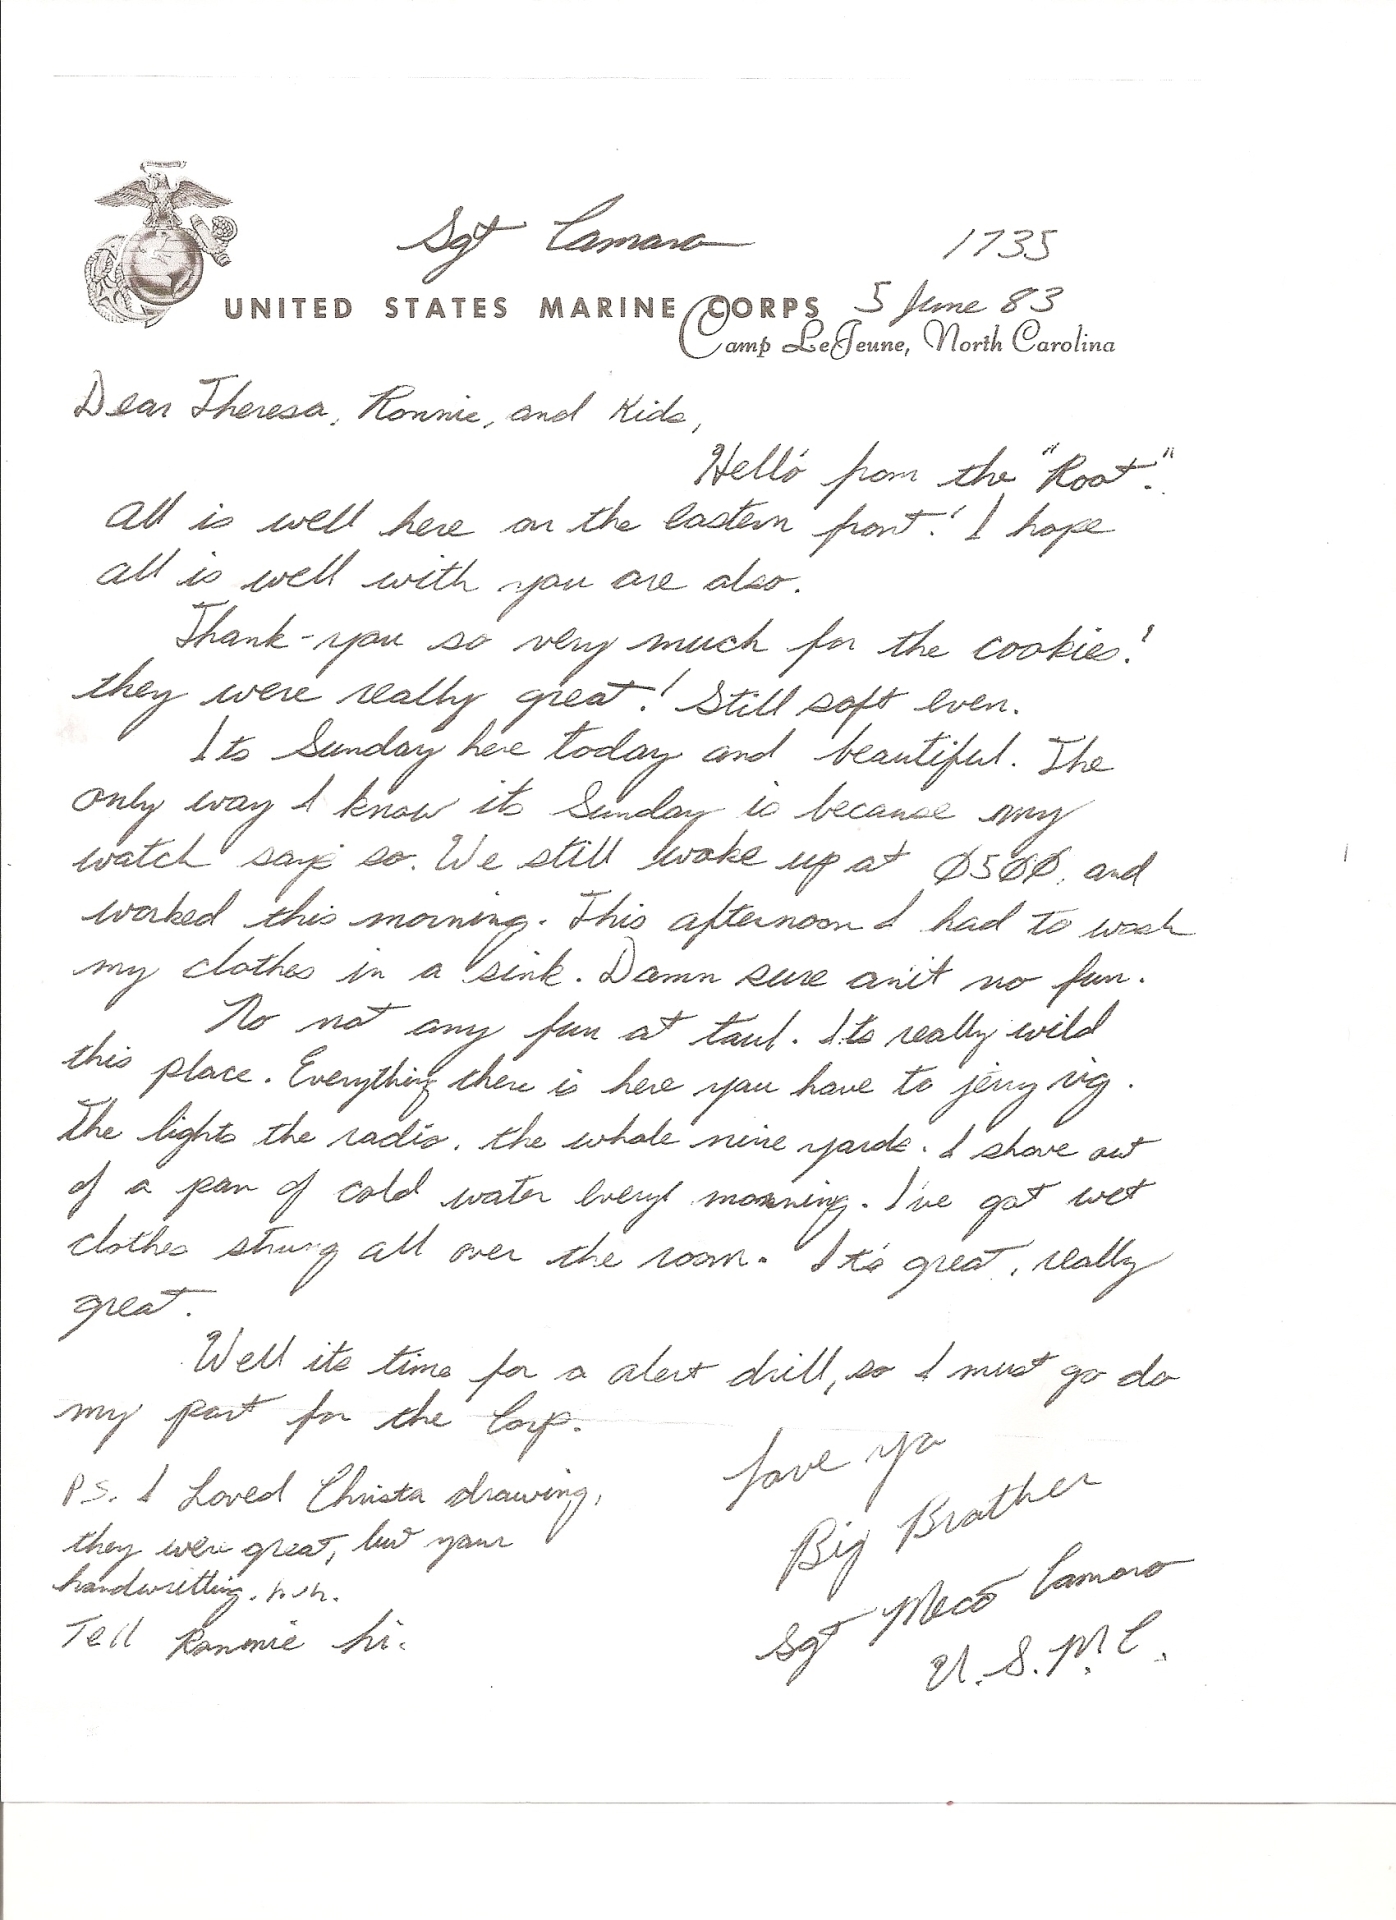 Sgt Camaro 1735
UNITED STATES MARINE CORPS 5 June 83
Camp LeJeune, North Carolina
Dear Theresa, Ronnie, and Kids,
Hello from the "Root."
All is well here on the eastern front! I hope
all is well with you are also.
Thank-you so very much for the cookies!
they were really great! Still soft even.
Its Sunday here today and beautiful. The
only way I know its Sunday is because my
watch says so. We still woke up at 0500, and
worked this morning. This afternoon I had to wash
my clothes in a sink. Damn sure ain't no fun.
No not any fun at taul. Its really wild
this place. Everything there is here you have to jerry rig.
The lights the radio, the whole nine yards. I shave out
of a pan of cold water every morning. I've got wet
clothes strung all over the room. It's great, really
great.
Well its time for a alert drill, so I must go do
my part for the Corp.
Love Ya
Big Brother
Sgt Meco Camaro
U.S.M.C.
PS. I Loved Christa drawing,
they were great, but your
handwritting. h.h.
Tell Ronnie hi.